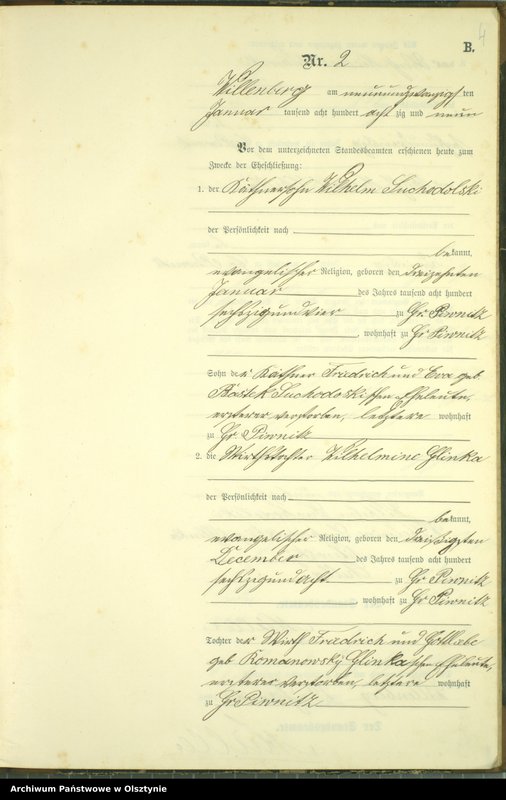 4
B.
Nr. 2
Willenberg am neunundzwanzigsten
Januar tausend acht hundert achtzig und neun
Vor dem unterzeichneten Standesbeamten erschienen heute zum
Zwecke der Eheschließung:
1. der Käthnersohn Wilhelm Suchodolski
der Persönlichkeit nach
bekannt,
evangelischer Religion, geboren den dreizehnten
Januar des Jahres tausend acht hundert
sechszigundvier zu Gr. Piwnitz
, wohnhaft zu Gr Piwnitz
Sohn der Käthner Friedrich und Eva geb.
Suchodolskischen Eheleute,
ersterer verstorben, letztere wohnhaft
zu Gr. Piwnitz
2. die Wirthstochter Wilhelmine Glinka
der Persönlichkeit nach
bekannt,
evangelischer Religion, geboren den dreißigsten
December des Jahres tausend acht hundert
sechszigundacht zu Gr Piwnitz
, wohnhaft zu Gr Piwnitz
Tochter der Wirth Friedrich und Gottliebe
geb Romanowsky Glinkaschen Eheleute,
ersterer verstorben, letztere wohnhaft
zu Gr Piwnitz
Archiwum Państwowe w Olsztynie